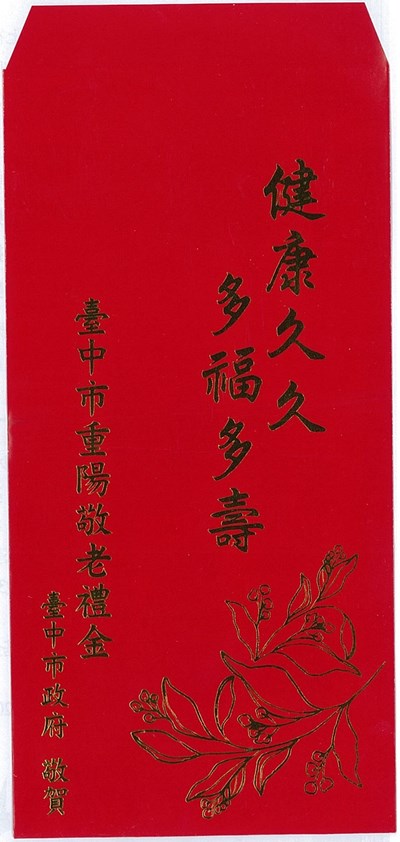 健康久久
多福多壽
臺中市重陽敬老禮金
臺中市政府 敬賀